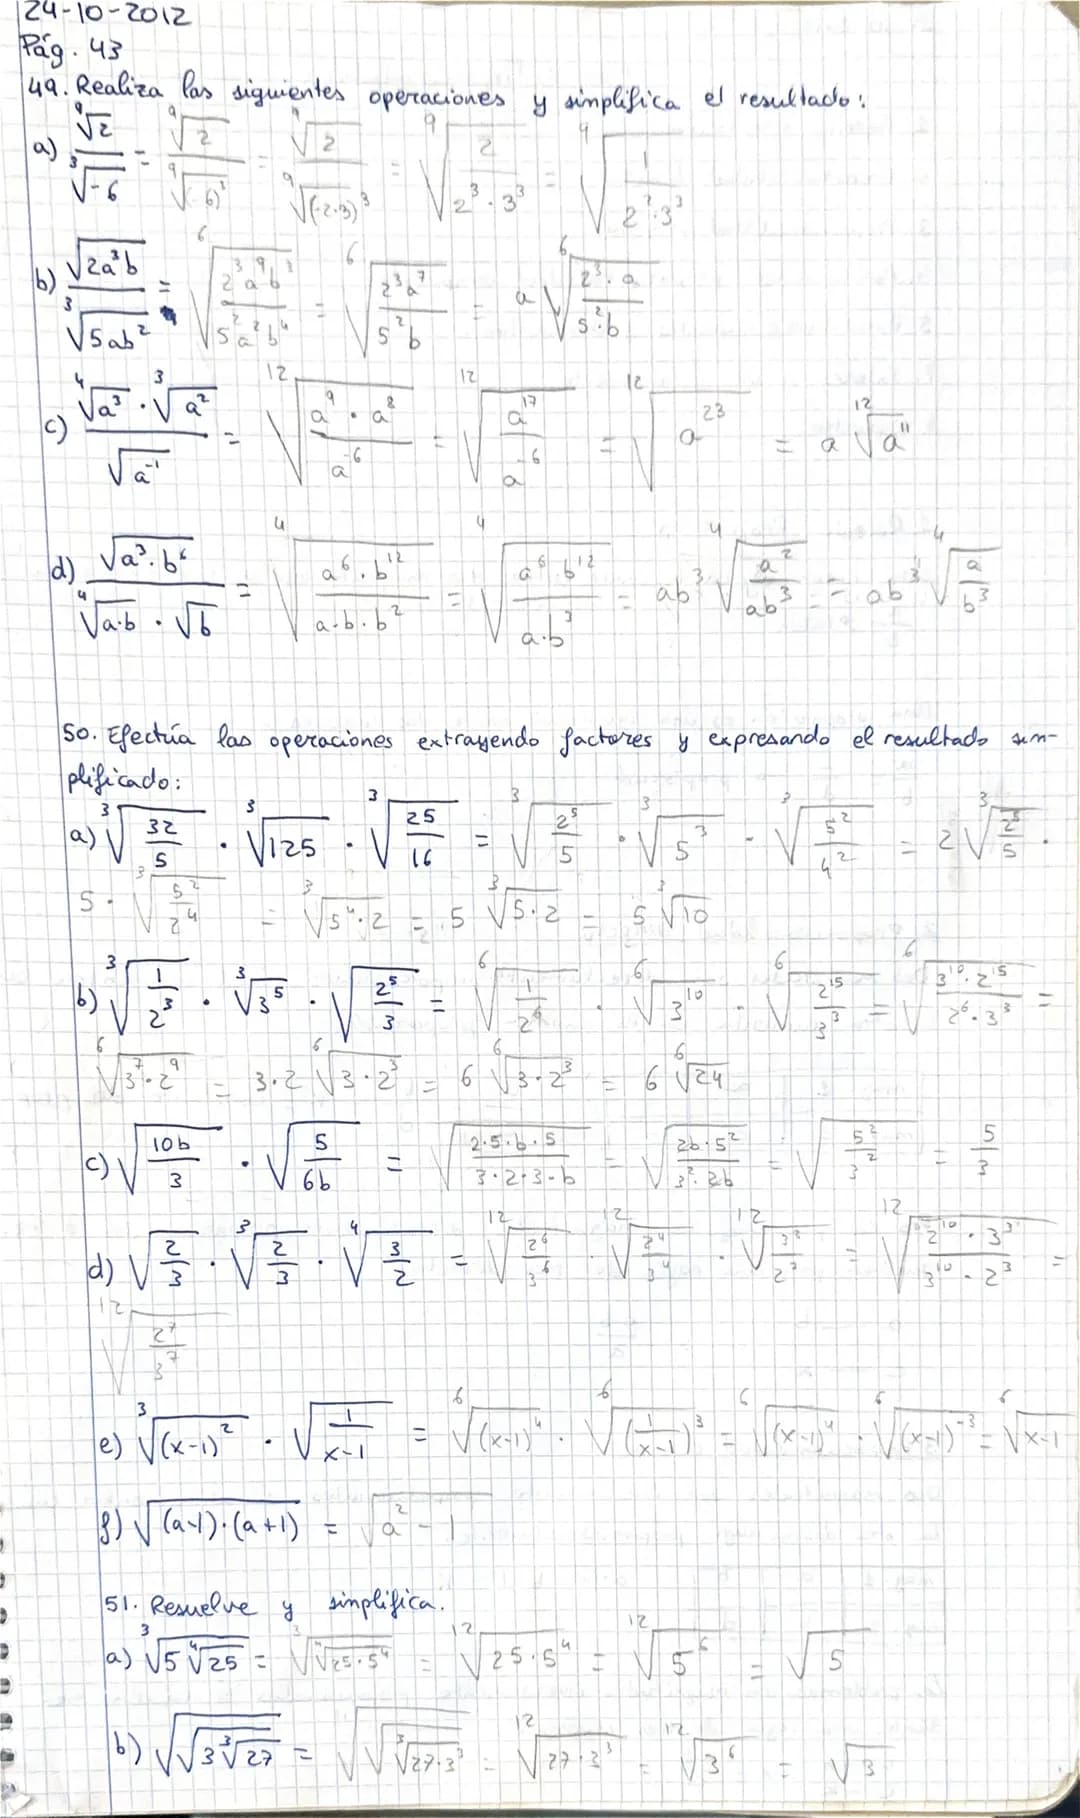 24-10-2012
Pág. 43
49. Realiza las siguientes operaciones y simplifica el resultado:
a) ⁹√2 / ³√-6 = ⁹√2 / ⁹√(-6)³ = ⁹√2 / ⁹√(-2·3)³ = ⁹√(2 / 2³·3³) = ⁹√(1 / 2²·3³)
b) √2a³b / ³√5ab² = ⁶√(2³a⁹b³ / 5²a²b⁴) = ⁶√(2³a⁷ / 5²b) = a ⁶√(2³·a / 5²·b)
c) ⁴√a³ · ³√a² / √a⁻¹ = ¹²√(a⁹·a⁸ / a⁻⁶) = ¹²√(a¹⁷ / a⁻⁶) = ¹²√a²³ = a ¹²√a¹¹
d) √a³·b⁶ / ⁴√a·b · √b = ⁴√(a⁶·b¹² / a·b·b²) = ⁴√(a⁶·b¹² / a·b³) = ab³ ⁴√(a² / ab³) = ab³ ⁴√(a / b³)
50. Efectúa las operaciones extrayendo factores y expresando el resultado sim-
plificado:
a) ³√(32/5) · ³√125 · ³√(25/16) = ³√(2⁵/5) · ³√5³ · ³√(5²/4²) = 2 ³√(2⁵/5) ·
5 · ³√(5²/2⁴) = ³√5⁴·2 = 5 ³√5·2 = 5 ³√10
b) ³√(1/2³) · ³√3⁵ · √(2⁵/3) = ⁶√(1/2⁶) · ⁶√3¹⁰ · ⁶√(2¹⁵/3³) = ⁶√(3¹⁰·2¹⁵ / 2⁶·3³) =
⁶√3⁷·2⁹ = 3·2 ⁶√3·2³ = 6 ⁶√3·2³ = 6 ⁶√24
c) √(10b/3) · √(5/6b) = √(2·5·b·5 / 3·2·3·b) = √(2b·5² / 3²·2b) = √(5²/3²) = 5/3
d) √(2/3) · ³√(2/3) · ⁴√(3/2) = ¹²√(2⁶/3⁶) · ¹²√(2⁴/3⁴) · ¹²√(3³/2³) = ¹²√(2¹⁰·3³ / 3¹⁰·2³) =
¹²√(2⁷/3⁷)
e) ³√(x-1)² · √(1/x-1) = ⁶√(x-1)⁴ · ⁶√(1/x-1)³ = ⁶√(x-1)⁴ · ⁶√(x-1)⁻³ = ⁶√x-1
f) √(a-1)·(a+1) = √a²-1
51. Resuelve y simplifica.
a) ³√5⁴√25 = ³√⁴√25·5⁴ = ¹²√25·5⁴ = ¹²√5⁶ = √5
b) √√3³√27 = √√³√27·3³ = ¹²√27·3³ = ¹²√3⁶ = √3